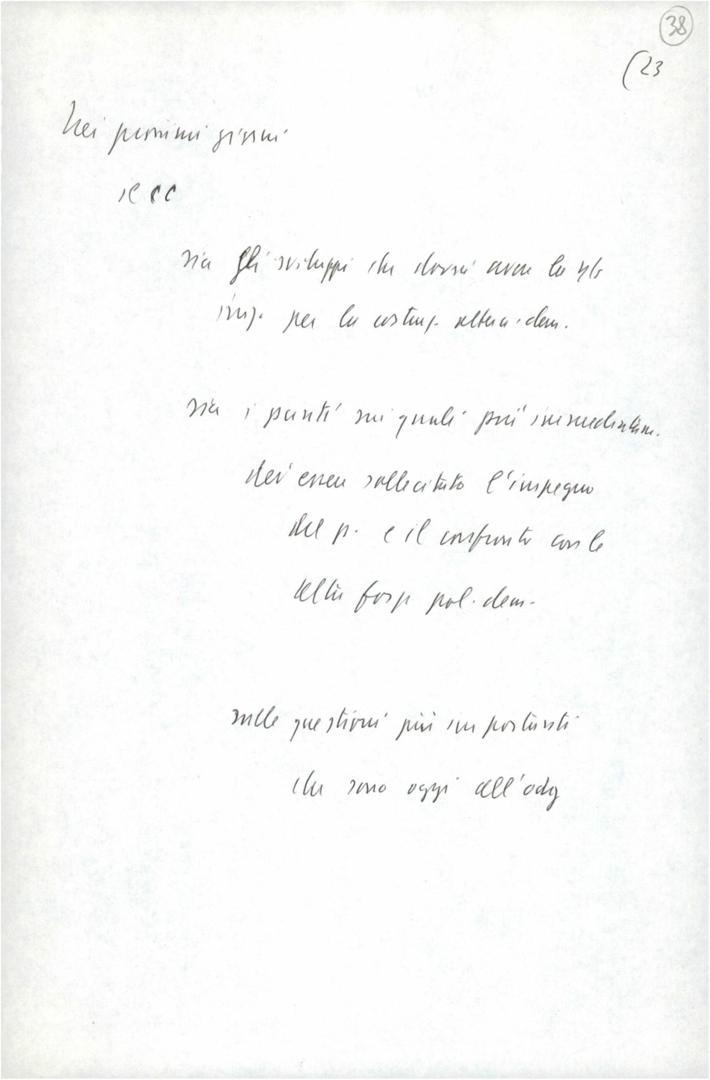 38
(23
Nei prossimi giorni
il CC
sia gli sviluppi che dovrà avere la ns
iniz. per la costruz. altern. dem.
sia i punti sui quali più immediatam.
dev'essere sollecitato l'impegno
del p. e il confronto con le
altre forze pol. dem.
sulle questioni più importanti
che sono oggi all'odg